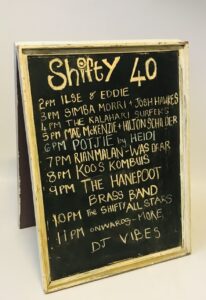 Shifty 40
2PM ILSE & EDDIE
3PM SIMBA MORRI + JOSH HAWKES
4PM THE KALAHARI SURFERS
5PM MAC MCKENZIE + HILTON SCHILDER
6PM POTJIE by HEIDI
7PM RIAN MALAN - WAS DEAR
8PM KOOS KOMBUIS
9PM THE HANEPOOT
BRASS BAND
10PM THE SHIFTY ALL STARS
11PM ONWARDS - MORE
DJ VIBES